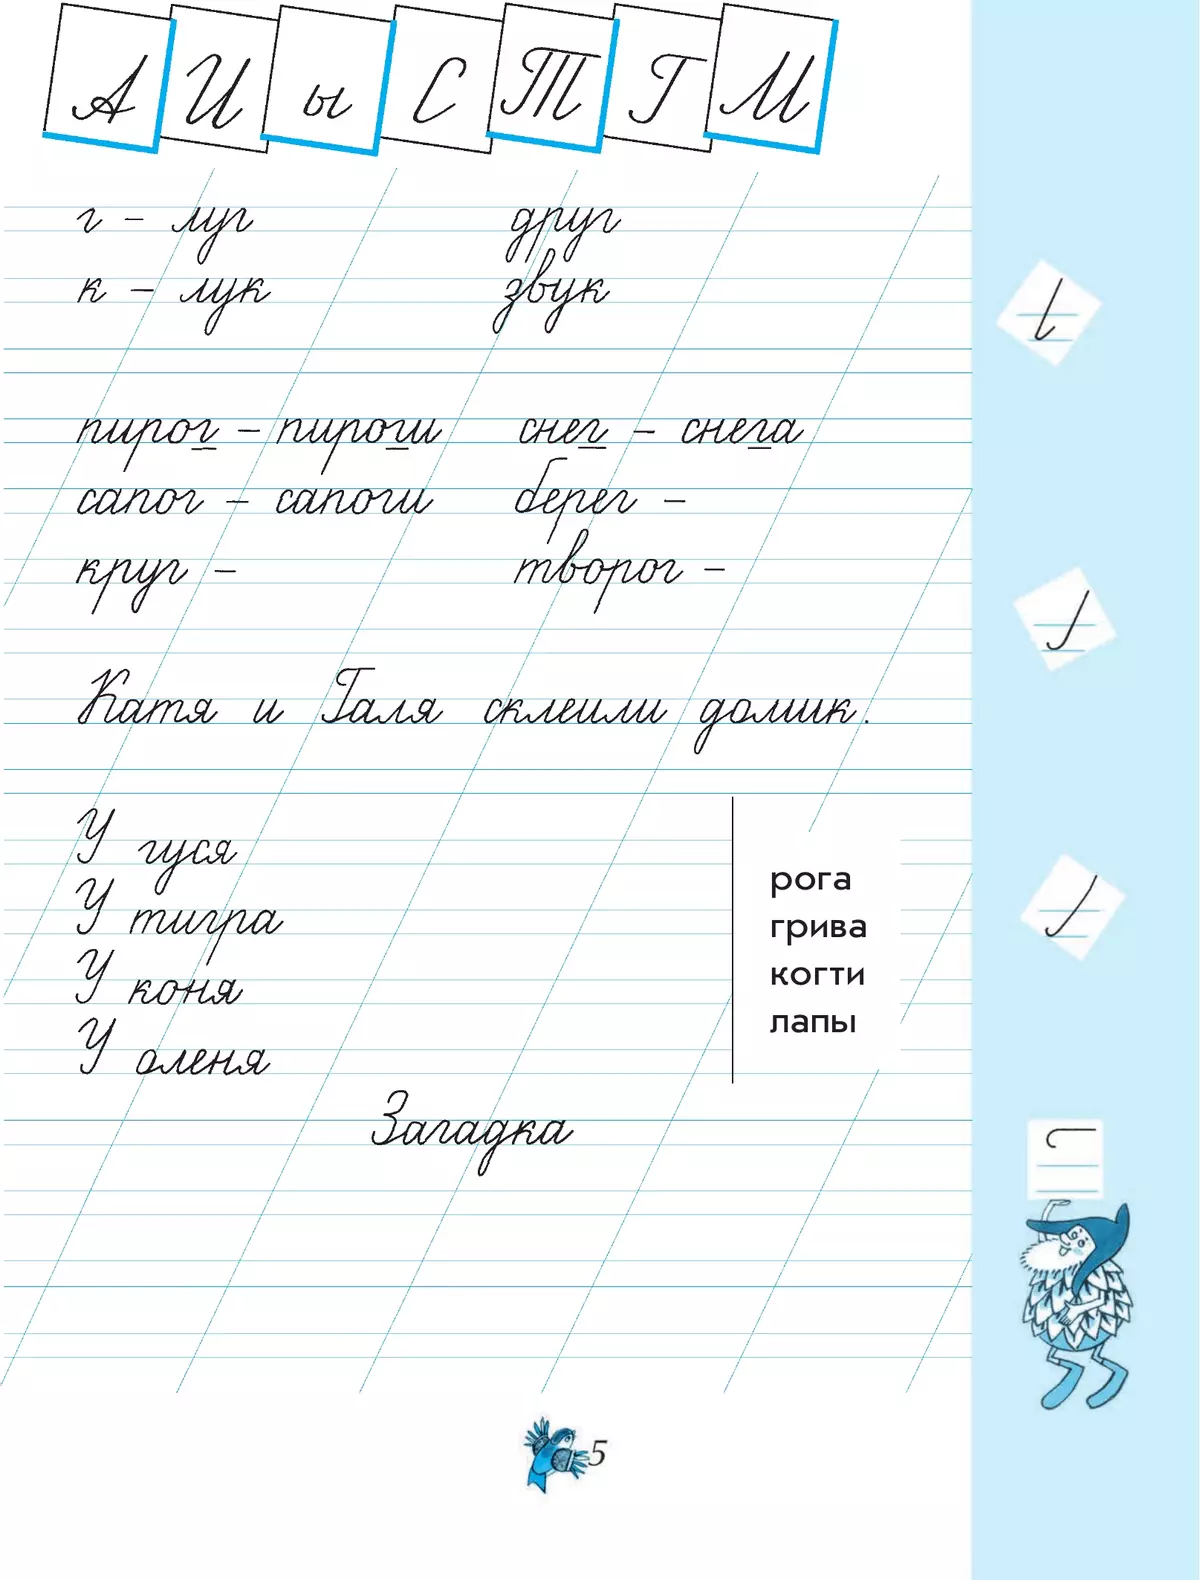 А И ы С Т Г М
г – луг друг
к – лук звук
пирог – пироги снег – снега
сапог – сапоги берег –
круг – творог –
Катя и Галя склеили домик.
У гуся
У тигра
У коня
У оленя
рога
грива
когти
лапы
Загадка
5